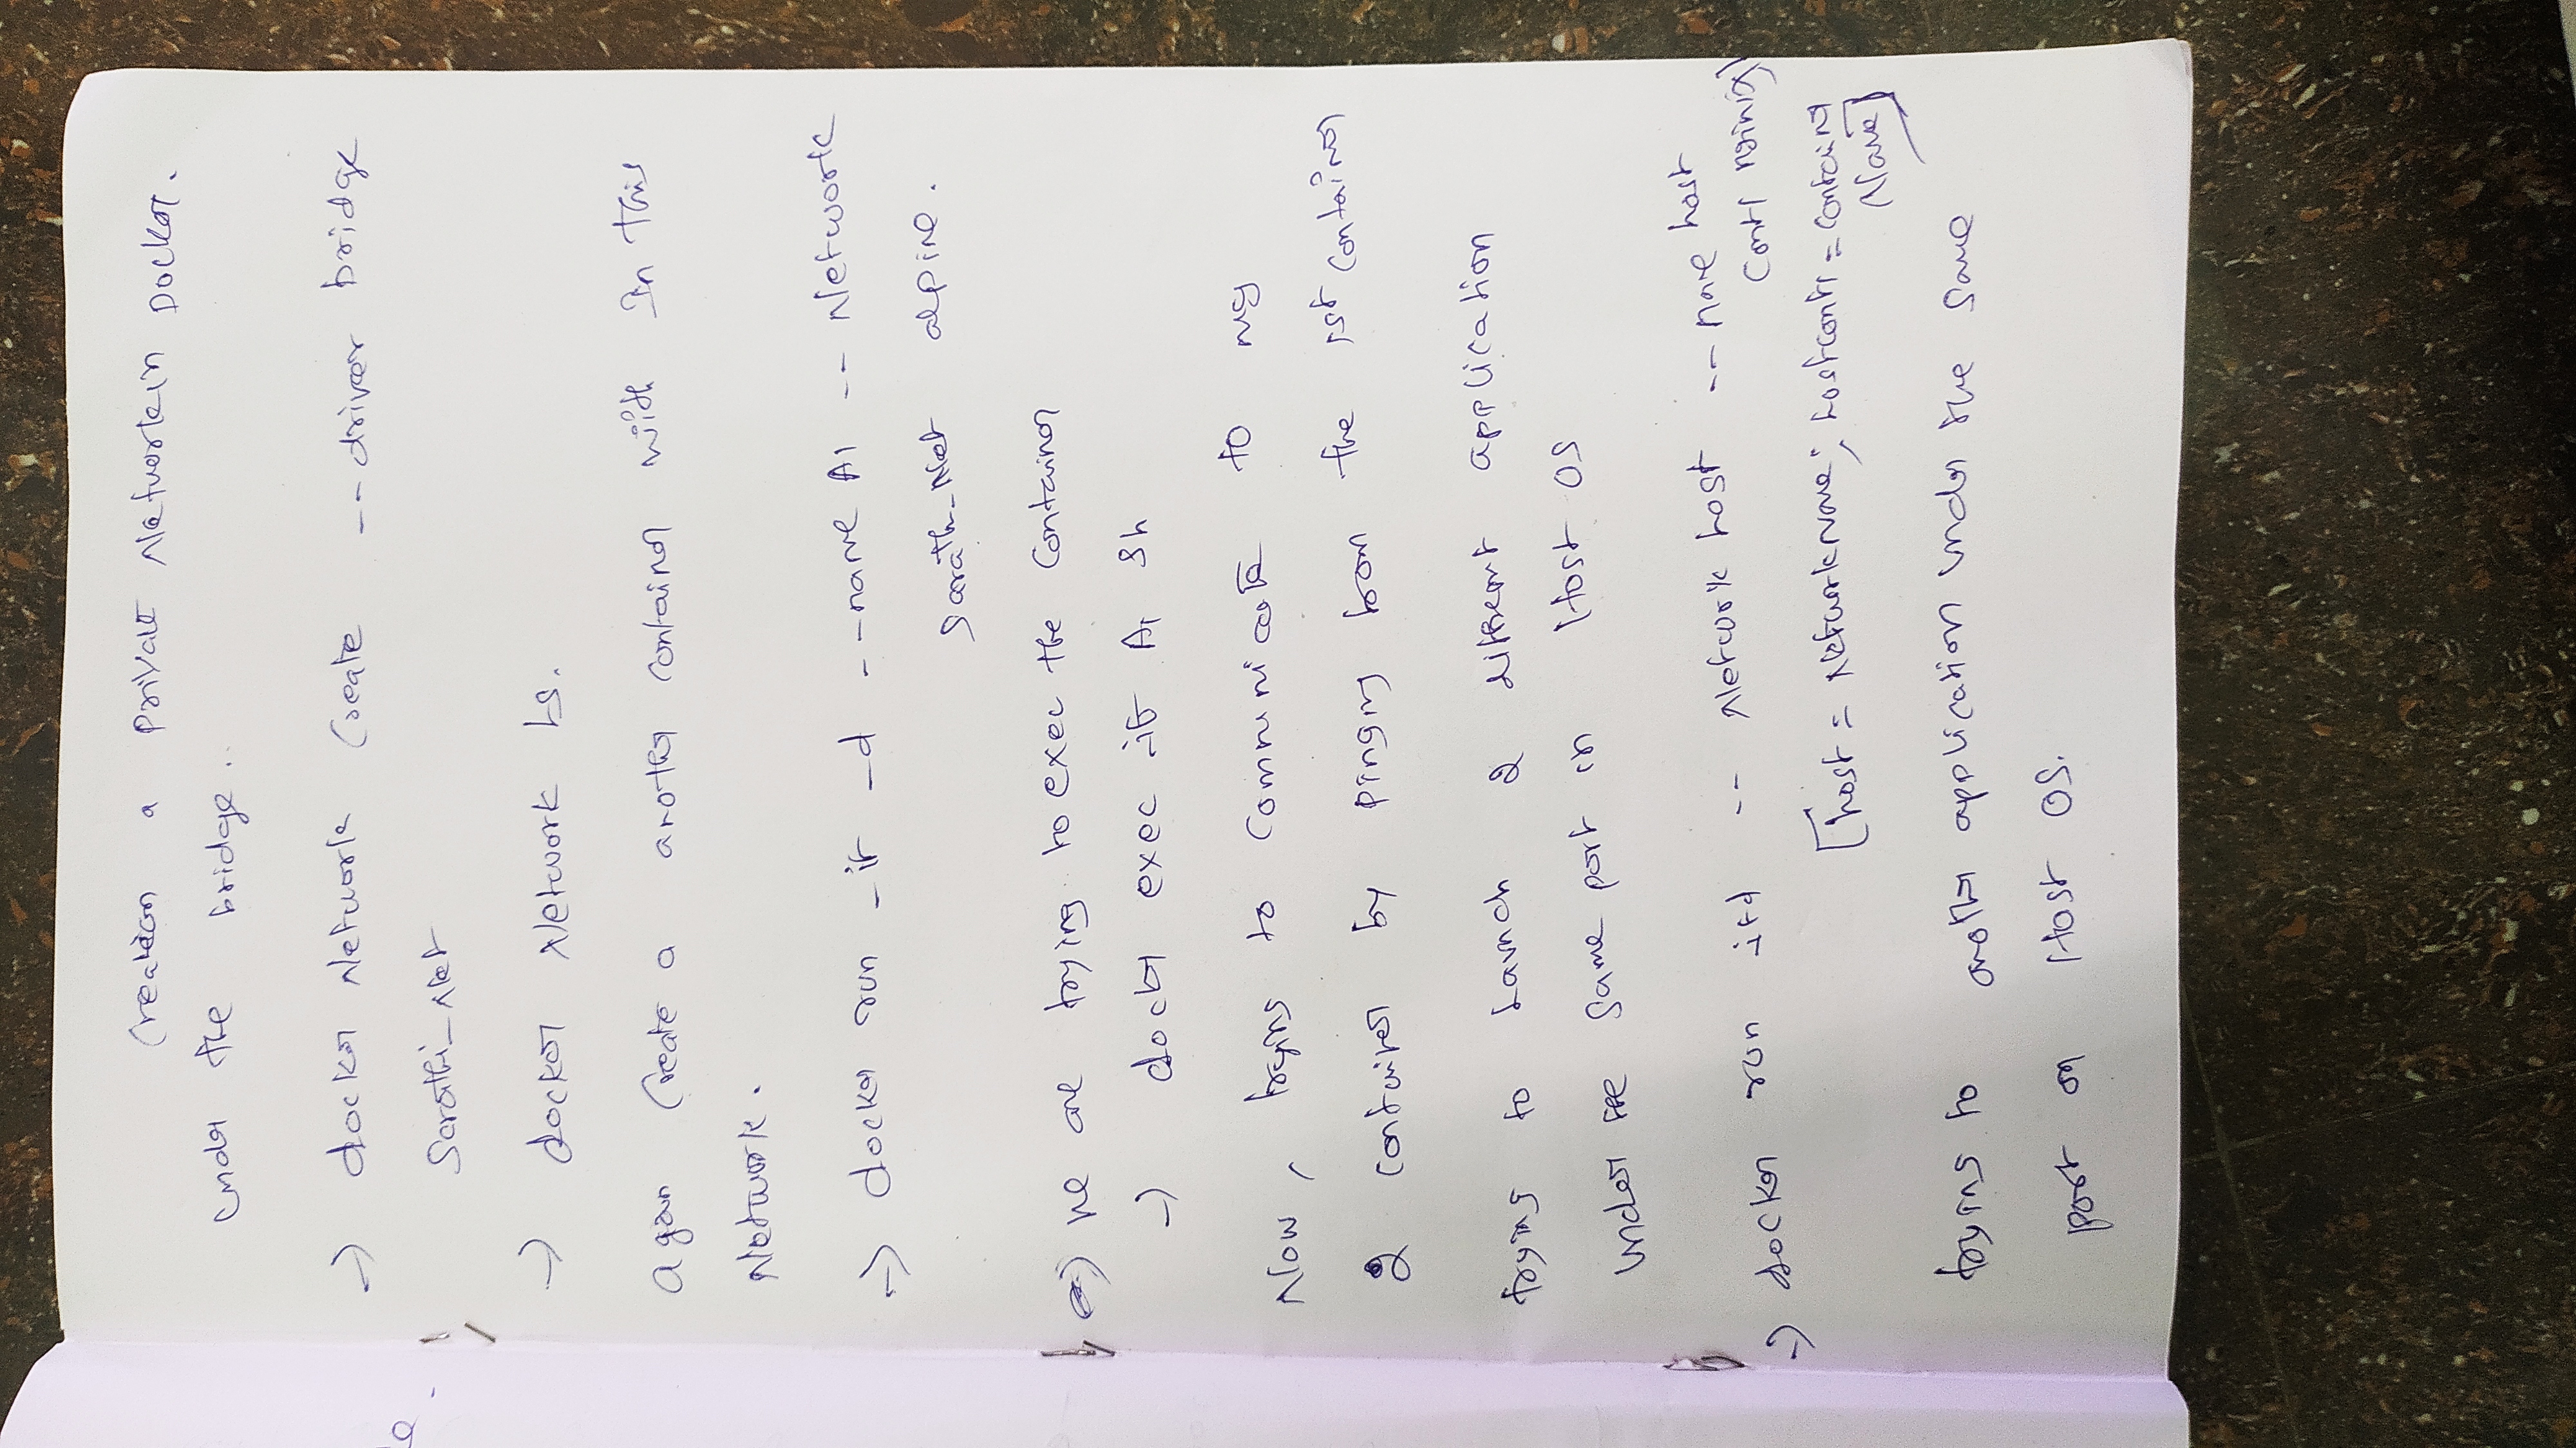 Creation a Private Network in Docker.
under the bridge..
→ docker Network Create --driver bridge
Sarathi_Net
→ docker Network Ls.
again Create a another container with In this
Network.
→ docker run -it -d --name A1 -- Network
Sarath_Net alpine.
→ we are trying to exec the Container
→ docker exec -it A1 sh
Now, trying to Communicate to my
2 container by pinging from the 1st container
trying to Launch 2 different application
under the same port in Host OS
→ docker run -itd -- Network host -- name host
Cont1 nginix
[host = Network Name; hostcont1 = container
Name]
trying to another application under the same
port on Host OS.